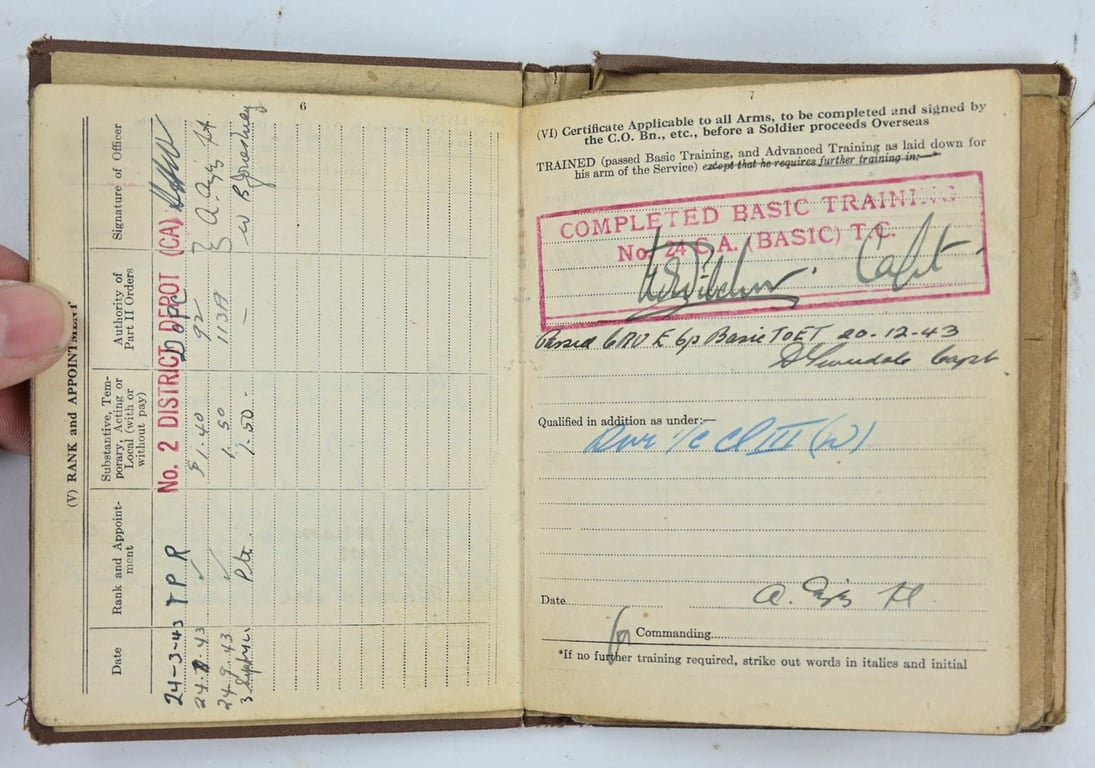 6
(V) RANK and APPOINTMENT
Date
Rank and Appoint-
ment
Substantive, Tem-
porary, Acting or
Local (with or
without pay)
Authority of
Part II Orders
Signature of Officer
24-3-43 TPR No. 2 DISTRICT DEPOT (CA)
43 $1.40 92
24.9.43 1.50 113A
Pte. 1.50 -
7
(VI) Certificate Applicable to all Arms, to be completed and signed by
the C.O. Bn., etc., before a Soldier proceeds Overseas
TRAINED (passed Basic Training, and Advanced Training as laid down for
his arm of the Service) except that he requires further training in:—*
COMPLETED BASIC TRAINING
No. 24 C.A. (BASIC) T.C.
Capt.
Passed Basic TOET 20-12-43
Capt
Qualified in addition as under:—
Dvr i/c Cl III (W)
Date
for Commanding
*If no further training required, strike out words in italics and initial